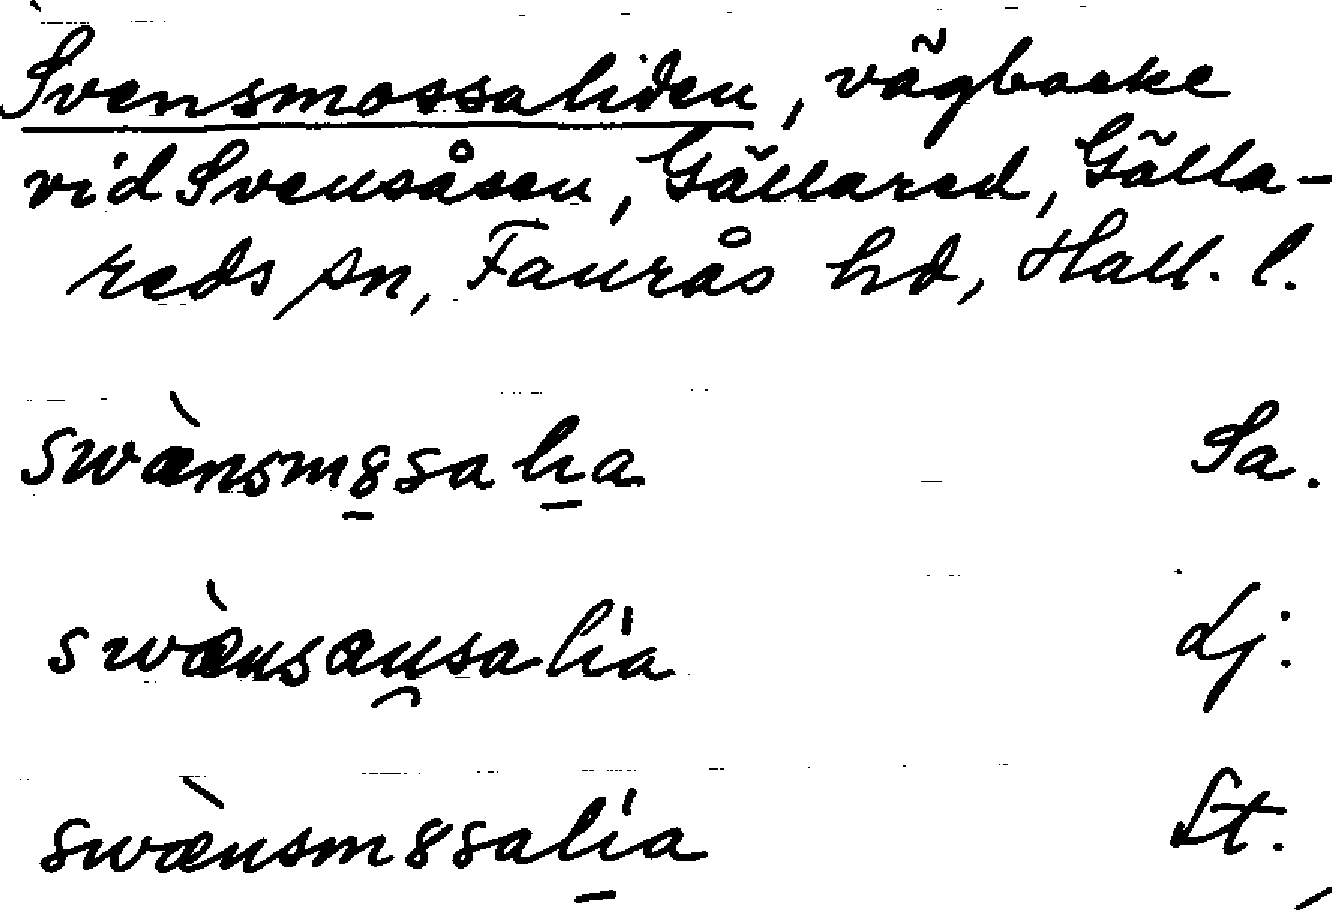 Svensmossaliden, vägbacke
vid Svensåsen, Gällared, Gälla-
reds sn, Faurås hd, Hall. l.
swæ̀nsm8salia Sa.
swæ̀nsansalia dj.
swæ̀nsm8salia St.